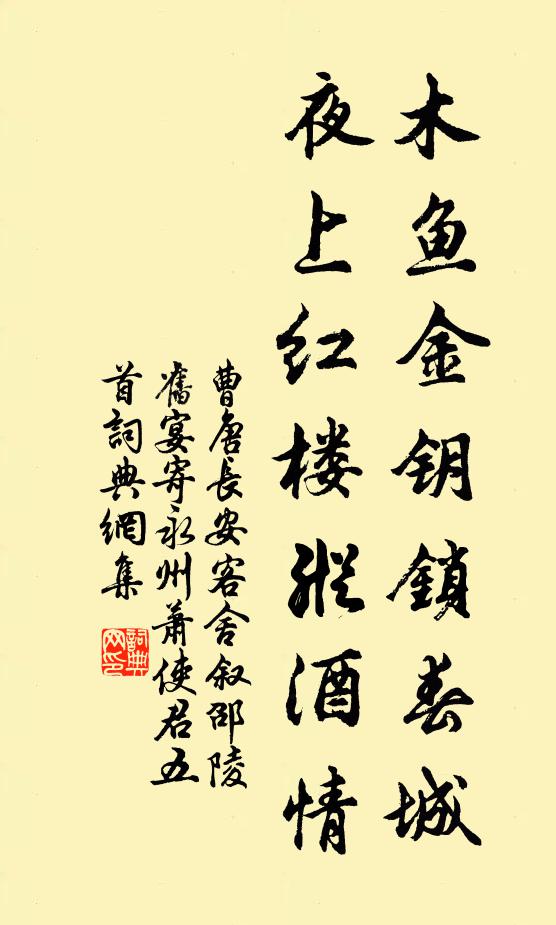 木鱼金钥鎖春城
夜上红楼縱酒情
曹唐長安客舍叙邵陵
舊宴寄永州萧使君五
首詞典網集
詞典
网印